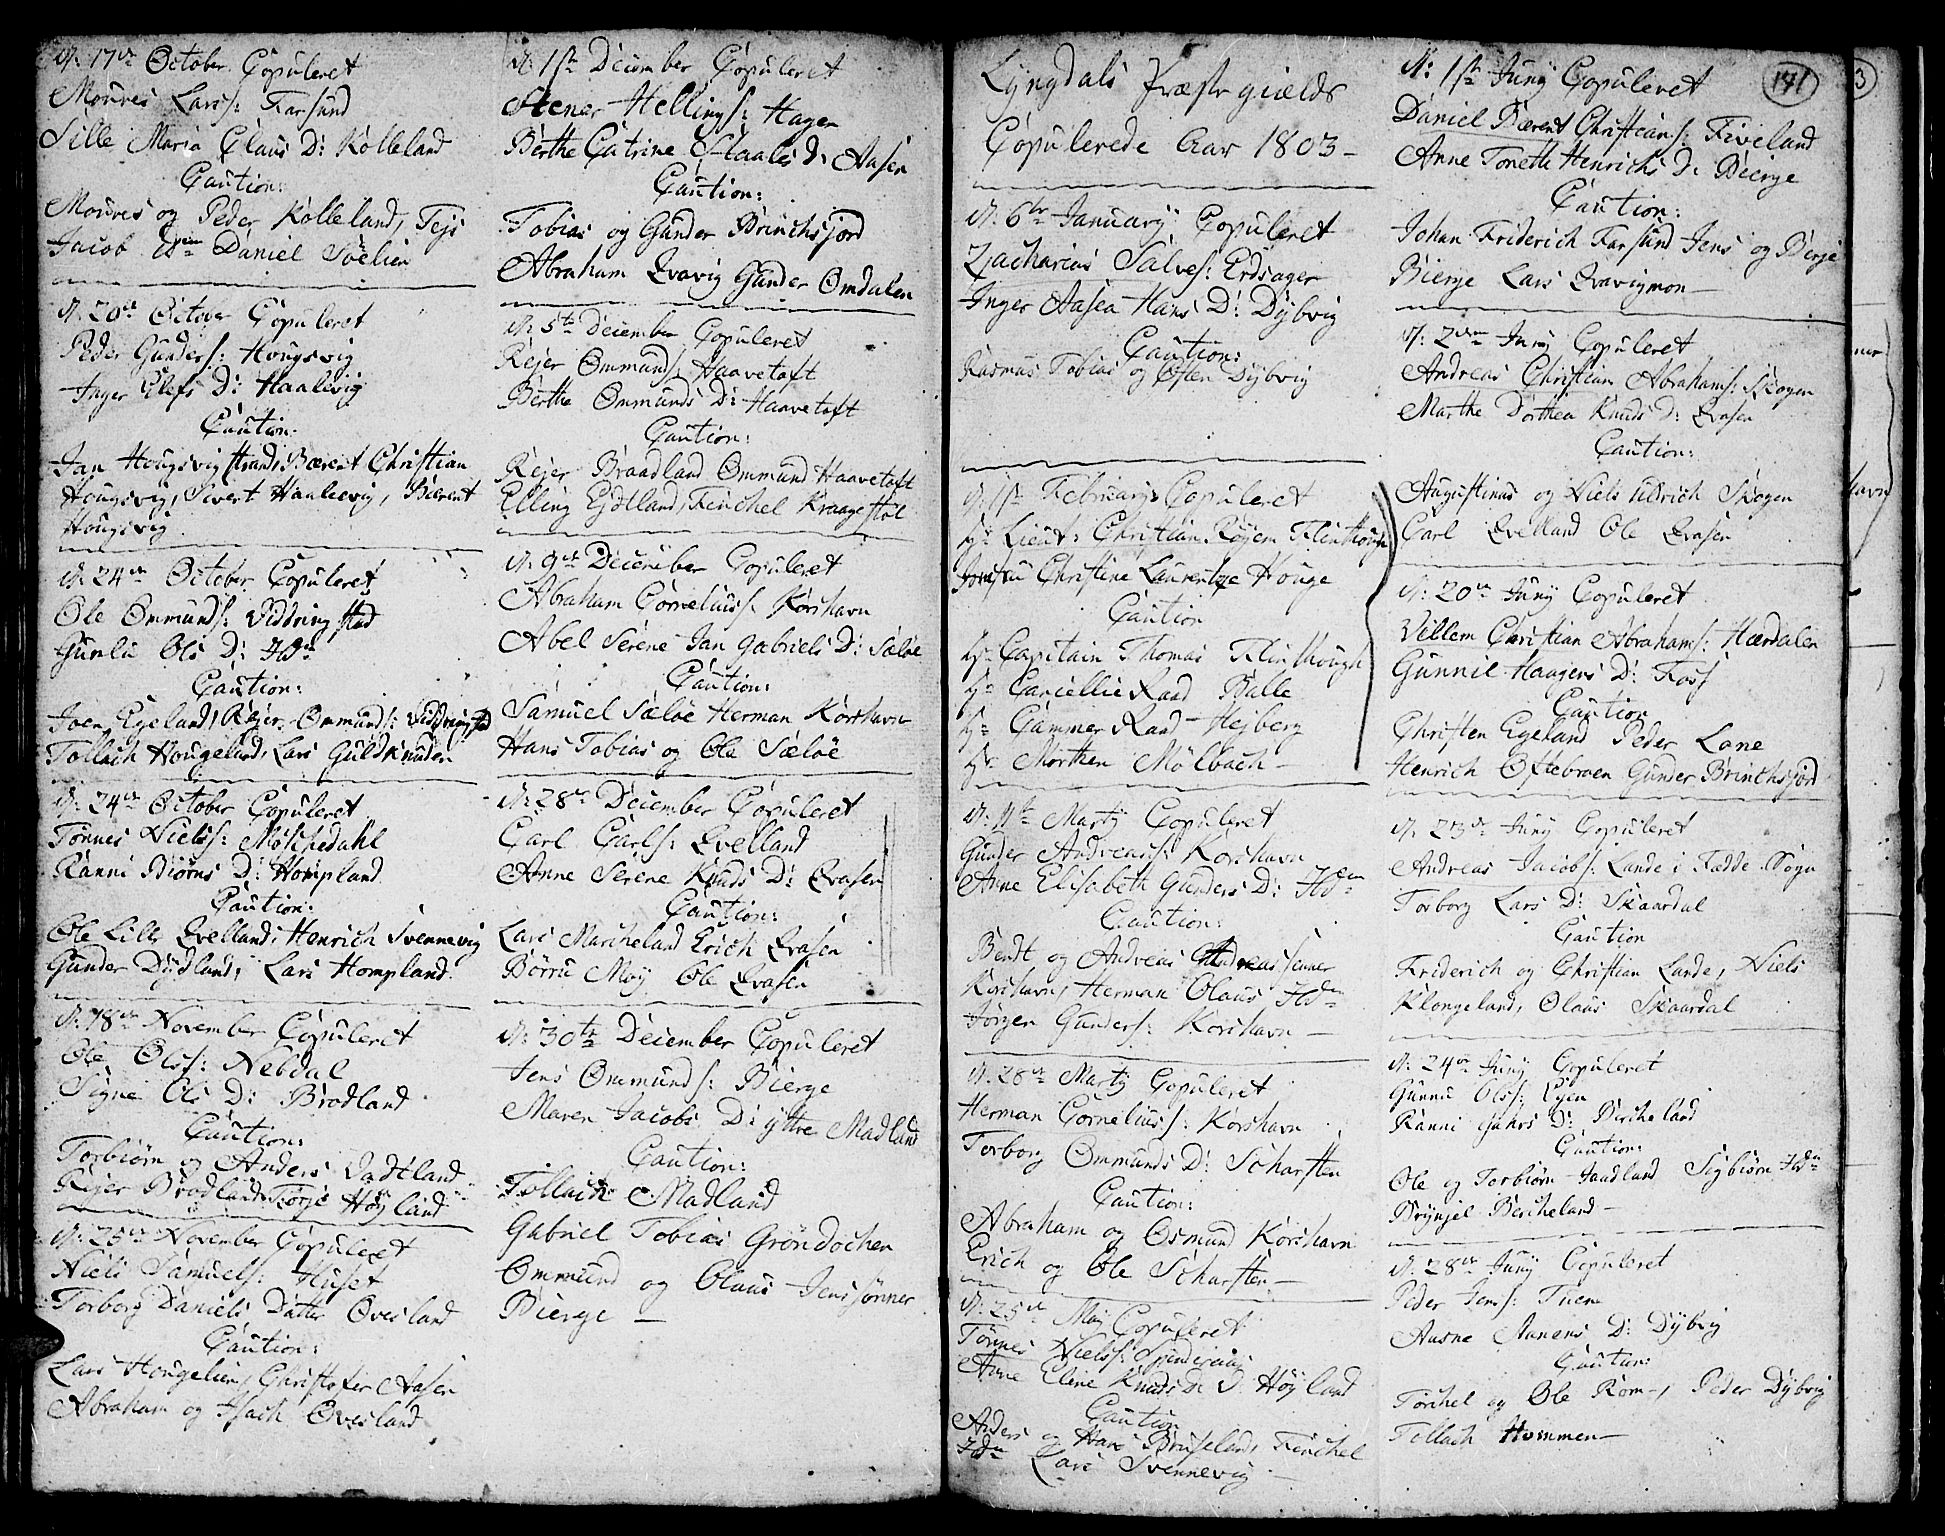 d: 17de October Copuleret
Moures Lars S: Farsund
Sille Maria Claus D: Kolleland
Caution:
Moures og Peder Kolleland, Tejs
Jacob Daniel
d: 20de October Copuleret
Peder Gunders: Hougsvig
Inger Olefs D: Haalevig
Caution:
Jan Hougsvig strand, Bærent Christian
Hougsvig, Sivert Haalevig, Bærent
Hougsvig
d: 24de October Copuleret
Ole Ommunds: Viddringstad
Gunlu Ols D: Jbdm
Caution:
Joen Egeland, Rejer Ommunds: Viddringstad
Tollach Hougeland, Lars Guldknuden
d: 24de October Copuleret
Tønnes Niels: Møschedahl
Ranni Biørns D: Hompland
Caution:
Ole Lille Qvelland, Henrich Svennevig
Gunder Dydland, Lars Hompland
d: 18de November Copuleret
Ole Ols: Nebdal
Signe Ols D: Brodland
Caution:
Torbiørn og Anders Vadtland
Rejer Brodland, Torje Højland
d: 25de November Copuleret
Niels Samuels: Huset
Torborg Daniels Datter Øvesland
Caution:
Lars Hougelien, Christofer Aasen
Abraham og Isach Øvesland
d: 1ste December Copuleret
Stener Hellings: Hagen
Berthe Catrine Staales D: Aasen
Caution:
Tobias og Gunder Brinchsjord
Abraham Qvavig Gunder Omdalen
d: 5te December Copuleret
Rejer Ommunds: Haavetoft
Berthe Ommunds D: Haavetoft
Caution:
Rejer Braadland Ommund Haavetoft
Elling Eydtland, Tenchel Kraagestøl
d: 9de December Copuleret
Abraham Cornelius: Korshavn
Abel Serene Jan Gabriels D: Sæløe
Caution:
Samuel Sæløe Herman Korshavn
Hans Tobias og Ole Sæløe
d: 28de December Copuleret
Carl Carls: Qvelland
Anne Serene Knuds D: Qvasen
Caution:
Lars Marcheland Erich Qvasen
Børru Moy Ole Qvasen
d: 30te December Copuleret
Jens Ommunds: Bierge
Maren Jacobs D: yttre Madland
Caution:
Tollach Madland
Gabriel Tobias Grøndochen
Ommund og Olaus Jenssønner
Bierge
Lyngdals Præste gields
Copulerede Aar 1803
d: 6te January Copuleret
Zacharias Salves: Erdsager
Inger Aasea Hans D: Dybvig
Caution:
Rasmus Tobias og Osten Dybvig
d: 1ste February Copuleret
Hr Lieut: Christian Røyem Flinthough
Jomfru Christine Laurentze Houge
Caution
Hr Capitain Thomas Flinthough
Hr Cancellie Raad Balle
Hr Cammer Raad Hejberg
Hr Morthen Mølbach
d: 11te Martÿ Copuleret
Gunder Andreas: Korshavn
Anne Elisabeth Gunders D: Jbdm
Caution:
Bendt og Andreas Andreassønner
Korshavn, Herman Olaus Jbdm
Jørgen Gunders: Korshavn
d: 28de Martÿ Copuleret
Herman Cornelius: Korshavn
Torborg Ommunds D: Scharsten
Caution:
Abraham og Osmund Korshavn
Erich og Ole Scharsten
d: 25de Maÿ Copuleret
Tønnes Niels:
Anne Eline Knuds D: Højland
Caution
Anders og Hans Bruseland, Tenchel
Jbdm Lars Svennevig
171
d: 1ste Junÿ Copuleret
Daniel Bærent Christians: Fiveland
Anne Tonette Henrichs D: Bierge
Caution:
Johan Friderich Farsund Jens og Børje
Bierge Lars Qvavigmon
d: 2den Junÿ Copuleret
Andreas Christian Abrahams: Skogen
Marthe Dorthea Knuds D: Qvasen
Caution:
Augustinus og Niels Uldrich Skogen
Carl Qvelland Ole Qvasen
d: 20de Junÿ Copuleret
Villem Christian Abrahams: Hærdalen
Gunnil Haagens D: Foss
Caution
Christen Egeland Peder Lane
Henrich Oftebroen Gunder Brinchsjord
d: 23de Junÿ Copuleret
Andreas Jacobs: Lande i Fædde Sogn
Torborg Lars D: Skaardal
Caution
Friderich og Christian Lande, Niels
Klongeland, Olaus Skaardal
d: 24de Junÿ Copuleret
Gunnu Ols: Eyen
Ranni Gahrs D: Bircheland
Caution:
Ole og Torbiørn Faadland Sigbiørn Jbdm
Brynjel Bercheland
d: 28de Junÿ Copuleret
Peder Jens: Tuen
Aasne Aanens D: Dybvig
Caution:
Torchel og Ole Rom, Peder Dybvig
Tollach Hommen
3
havn